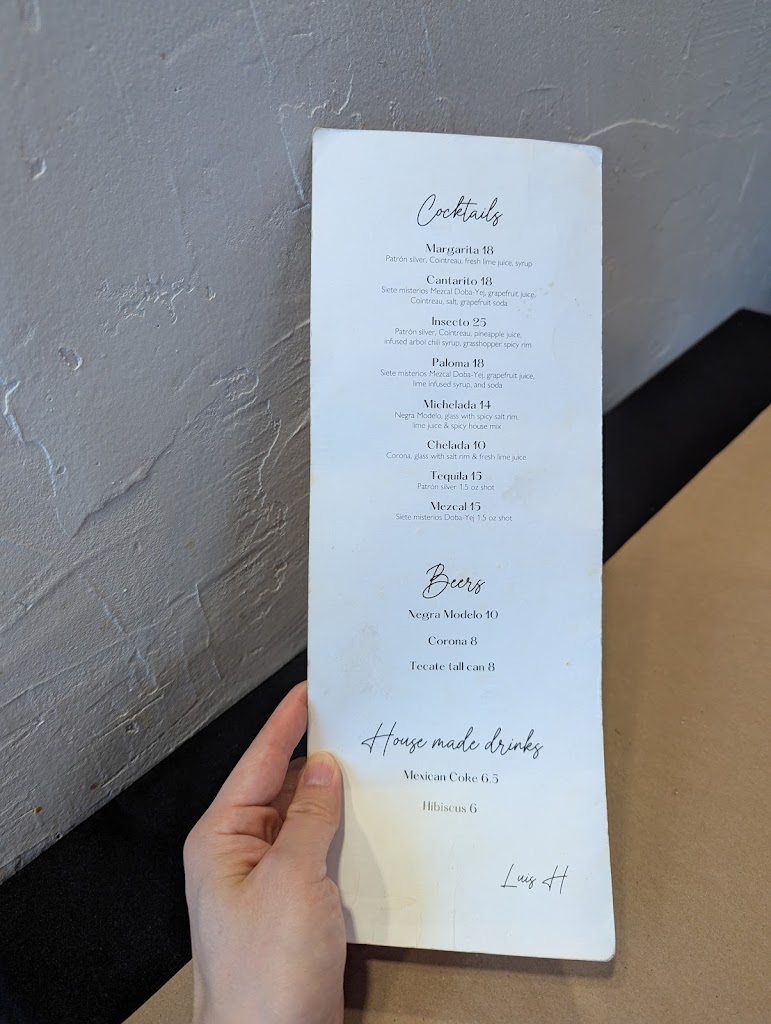 Cocktails
Margarita 18
Patrón silver, Cointreau, fresh lime juice, syrup
Cantarito 18
Siete misterios Mezcal Doba-Yej, grapefruit juice,
Cointreau, salt, grapefruit soda
Insecto 25
Patrón silver, Cointreau, pineapple juice,
infused arbol chili syrup, grasshopper spicy rim
Paloma 18
Siete misterios Mezcal Doba-Yej, grapefruit juice,
lime infused syrup, and soda
Michelada 14
Negra Modelo, glass with spicy salt rim,
lime juice & spicy house mix
Chelada 10
Corona, glass with salt rim & fresh lime juice
Tequila 15
Patrón silver 1.5 oz shot
Mezcal 15
Siete misterios Doba-Yej 1.5 oz shot
Beers
Negra Modelo 10
Corona 8
Tecate tall can 8
House made drinks
Mexican Coke 6.5
Hibiscus 6
Luis H